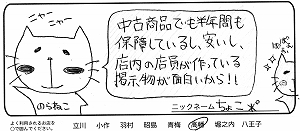 ニャー ニャー
中古商品でも半年間も
保障しているし、安いし、
店内の店員が作っている
掲示物が面白いから!!
のらねこ
ニックネーム ちょこ
よく利用されるお店を
○で囲んでください。
立川 小作 羽村 昭島 青梅 高幡 堀之内 八王子